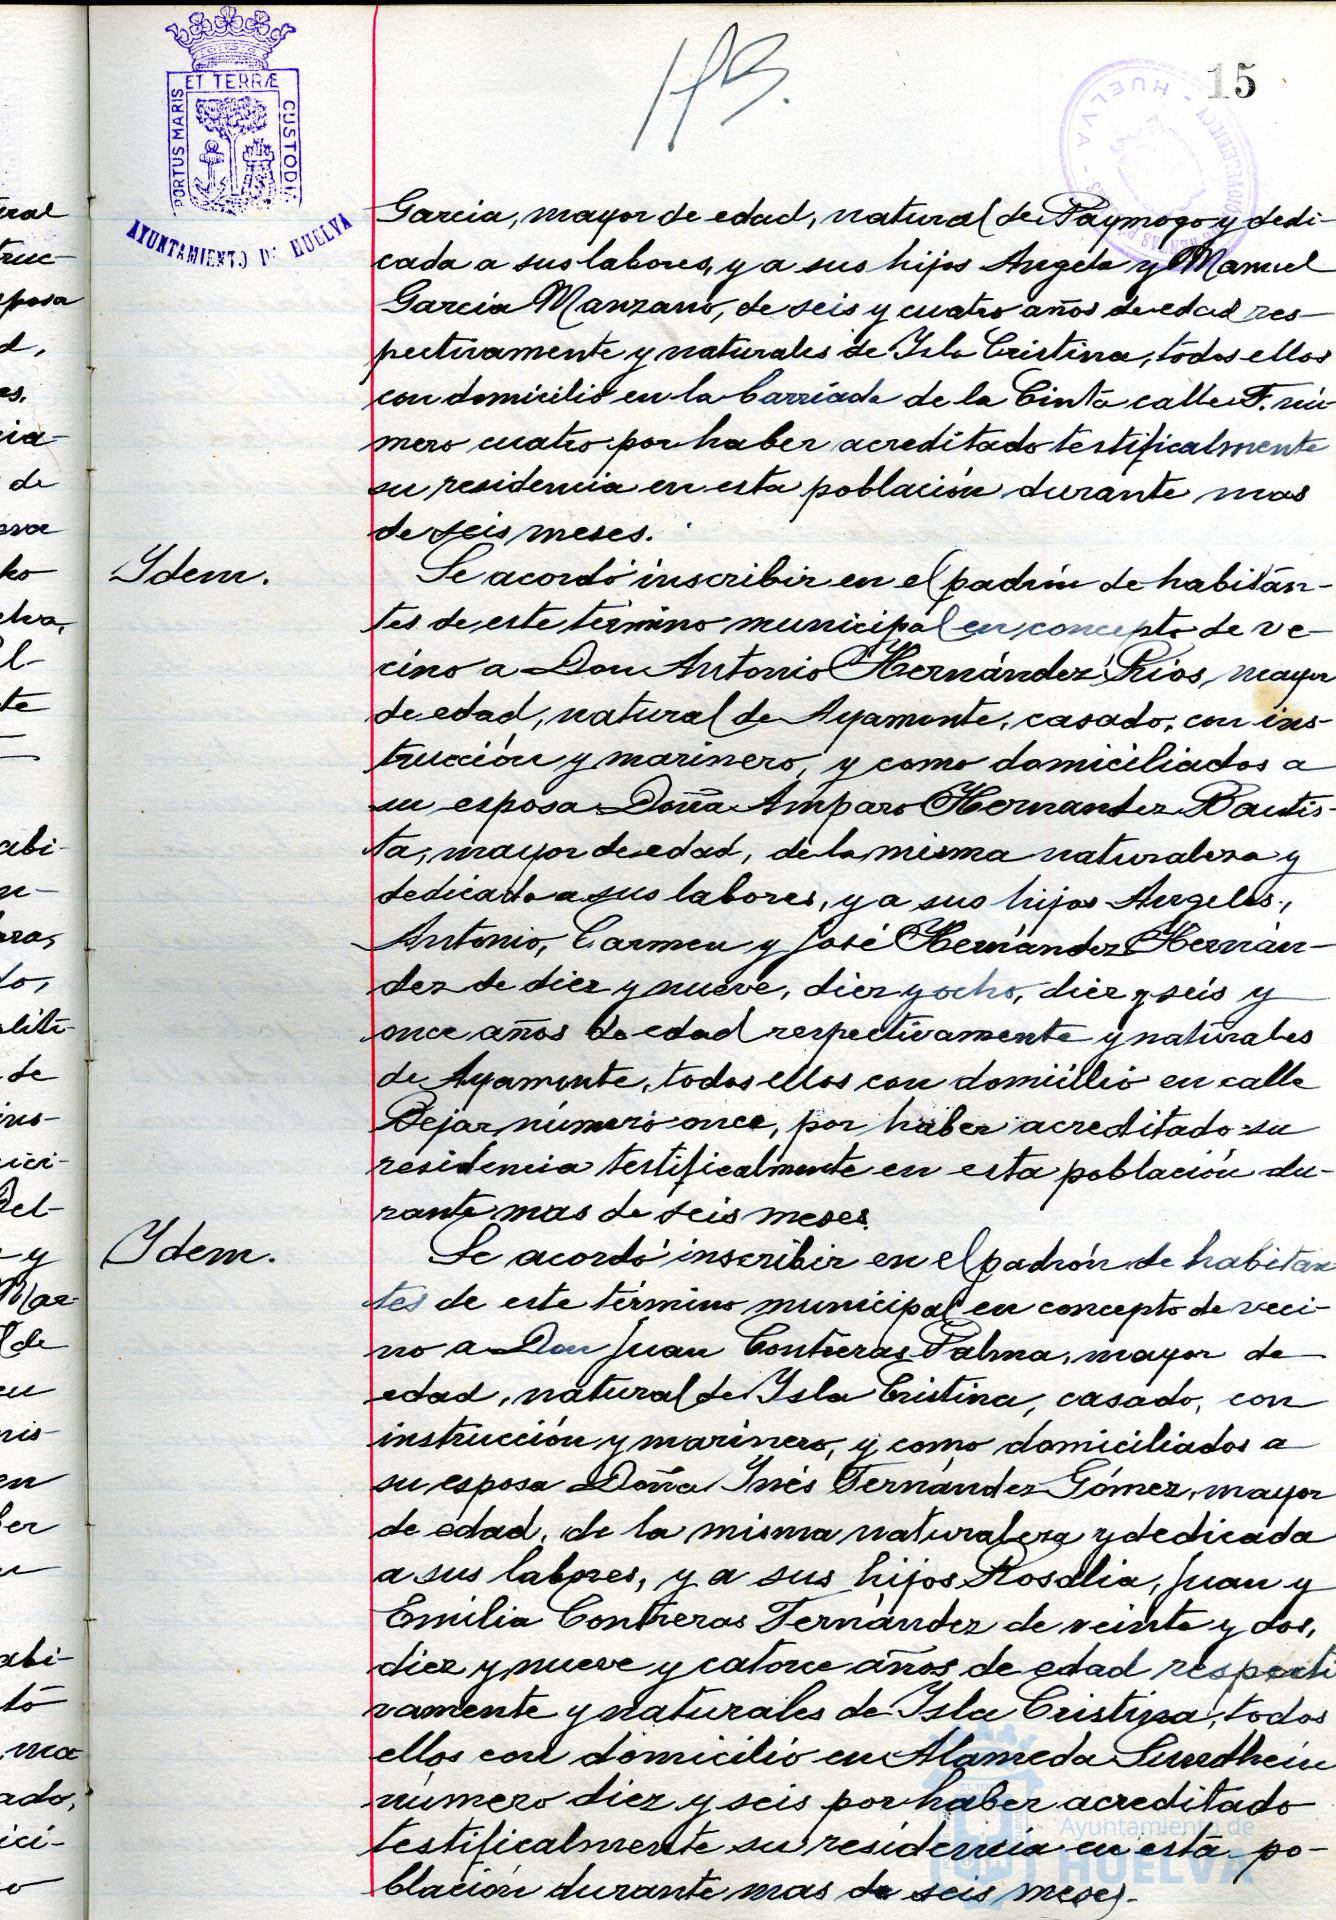 PORTUS MARIS ET TERRÆ CUSTODI
AYUNTAMIENTO DE HUELVA
15
HUELVA
Garcia, mayor de edad, natural de Paymogo y dedi-
cada a sus labores, y a sus hijos Angela y Manuel
Garcia Manzano, de seis y cuatro años de edad res-
pectivamente y naturales de Ysla Cristina, todos ellos
con domicilio en la barriada de la Cinta calle F. nú-
mero cuatro por haber acreditado testificalmente
su residencia en esta población durante mas
de seis meses.
Ydem.
Se acordó inscribir en el padrón de habitan-
tes de este término municipal en concepto de ve-
cino a Don Antonio Hernández Rios, mayor
de edad, natural de Ayamonte, casado, con ins-
trucción y marinero, y como domiciliados a
su esposa Doña Amparo Hernandez Bautis-
ta, mayor de edad, de la misma naturaleza y
dedicada a sus labores, y a sus hijos Angeles,
Antonio, Carmen y José Hernández Hernán-
dez de diez y nueve, diez y ocho, diez y seis y
once años de edad respectivamente y naturales
de Ayamonte, todos ellos con domicilio en calle
Bejar número once, por haber acreditado su
residencia testificalmente en esta población du-
rante mas de seis meses.
Ydem.
Se acordó inscribir en el padrón de habitan
tes de este término municipal en concepto de veci-
no a Don Juan Contreras Palma, mayor de
edad, natural de Ysla Cristina, casado, con
instrucción y marinero, y como domiciliados a
su esposa Doña Ynés Fernández Gómez, mayor
de edad, de la misma naturaleza y dedicada
a sus labores, y a sus hijos Rosalia, Juan y
Emilia Contreras Fernández de veinte y dos,
diez y nueve y catorce años de edad respecti
vamente y naturales de Ysla Cristina, todos
ellos con domicilio en Alameda Sundhein
número diez y seis por haber acreditado
testificalmente su residencia en esta po-
blación durante mas de seis meses.
Ayuntamiento de
HUELVA